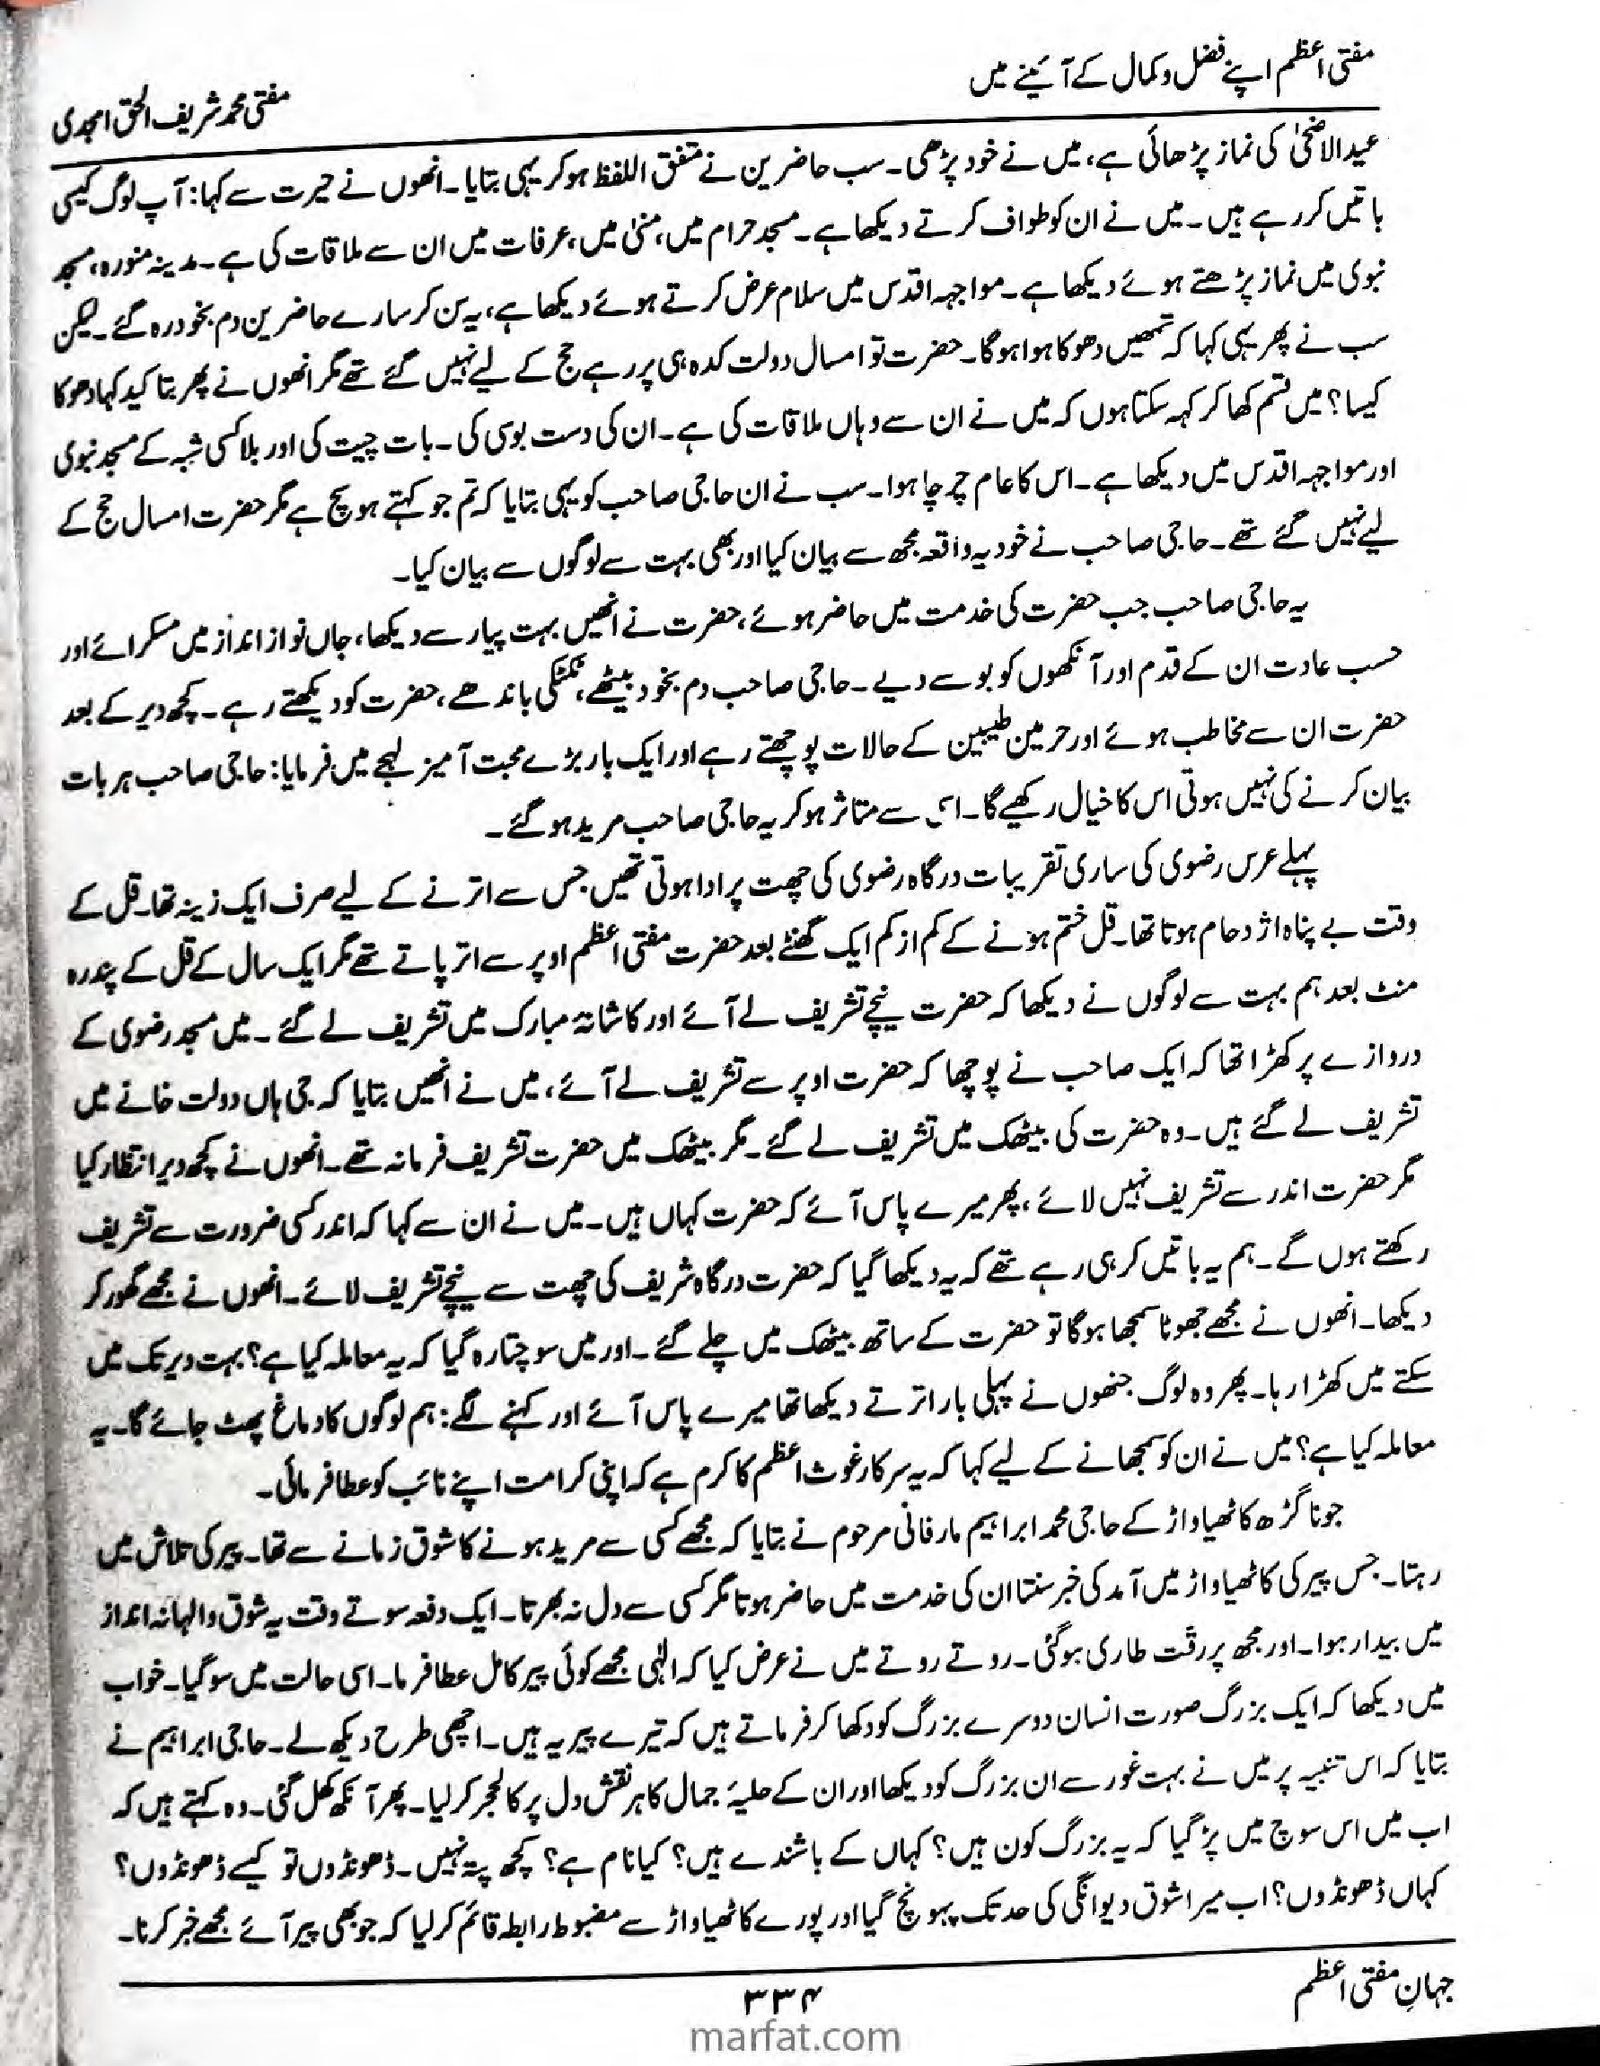 مفتی اعظم اپنے فضل و کمال کے آئینے میں
مفتی محمد شریف الحق امجدی
عید الاضحیٰ کی نماز پڑھائی ہے، میں نے خود پڑھی۔ سب حاضرین نے متفق اللفظ ہو کر یہی بتایا۔ انھوں نے حیرت سے کہا: آپ لوگ کیسی
باتیں کر رہے ہیں۔ میں نے ان کو طواف کرتے دیکھا ہے۔ مسجد حرام میں، منیٰ میں، عرفات میں ان سے ملاقات کی ہے۔ مدینہ منورہ، مسجد
نبوی میں نماز پڑھتے ہوئے دیکھا ہے۔ مواجہہ اقدس میں سلام عرض کرتے ہوئے دیکھا ہے، یہ سن کر سارے حاضرین دم بخود رہ گئے۔ لیکن
سب نے پھر یہی کہا کہ تمھیں دھوکا ہوا ہوگا۔ حضرت تو امسال دولت کدہ ہی پر رہے حج کے لیے نہیں گئے تھے مگر انھوں نے پھر بتاکید کہا دھوکا
کیسا؟ میں قسم کھا کر کہہ سکتا ہوں کہ میں نے ان سے وہاں ملاقات کی ہے۔ ان کی دست بوسی کی۔ بات چیت کی اور بلا کسی شبہ کے مسجد نبوی
اور مواجہہ اقدس میں دیکھا ہے۔ اس کا عام چرچا ہوا۔ سب نے ان حاجی صاحب کو یہی بتایا کہ تم جو کہتے ہو سچ ہے مگر حضرت امسال حج کے
لیے نہیں گئے تھے۔ حاجی صاحب نے خود یہ واقعہ مجھ سے بیان کیا اور بھی بہت سے لوگوں سے بیان کیا۔
یہ حاجی صاحب جب حضرت کی خدمت میں حاضر ہوئے، حضرت نے انھیں بہت پیار سے دیکھا، جاں نواز انداز میں مسکرائے اور
حسب عادت ان کے قدم اور آنکھوں کو بوسے دیے۔ حاجی صاحب دم بخود بیٹھے، ٹکٹکی باندھے، حضرت کو دیکھتے رہے۔ کچھ دیر کے بعد
حضرت ان سے مخاطب ہوئے اور حرمین طیبین کے حالات پوچھتے رہے اور ایک بار بڑے محبت آمیز لہجے میں فرمایا: حاجی صاحب ہر بات
بیان کرنے کی نہیں ہوتی اس کا خیال رکھیے گا۔ اس سے متاثر ہو کر یہ حاجی صاحب مرید ہو گئے۔
پہلے عرس رضوی کی ساری تقریبات درگاہ رضوی کی چھت پر ادا ہوتی تھیں جس سے اترنے کے لیے صرف ایک زینہ تھا۔ قل کے
وقت بے پناہ اژدحام ہوتا تھا۔ قل ختم ہونے کے کم از کم ایک گھنٹے بعد حضرت مفتی اعظم اوپر سے اتر پاتے تھے مگر ایک سال کے قل کے پندرہ
منٹ بعد ہم بہت سے لوگوں نے دیکھا کہ حضرت نیچے تشریف لے آئے اور کاشانۂ مبارک میں تشریف لے گئے۔ میں مسجد رضوی کے
دروازے پر کھڑا تھا کہ ایک صاحب نے پوچھا کہ حضرت اوپر سے تشریف لے آئے، میں نے انھیں بتایا کہ جی ہاں دولت خانے میں
تشریف لے گئے ہیں۔ وہ حضرت کی بیٹھک میں تشریف لے گئے۔ مگر بیٹھک میں حضرت تشریف فرما نہ تھے۔ انھوں نے کچھ دیر انتظار کیا
مگر حضرت اندر سے تشریف نہیں لائے، پھر میرے پاس آئے کہ حضرت کہاں ہیں۔ میں نے ان سے کہا کہ اندر کسی ضرورت سے تشریف
رکھتے ہوں گے۔ ہم یہ باتیں کر ہی رہے تھے کہ یہ دیکھا گیا کہ حضرت درگاہ شریف کی چھت سے نیچے تشریف لائے۔ انھوں نے مجھے گھور کر
دیکھا۔ انھوں نے مجھے جھوٹا سمجھا ہوگا تو حضرت کے ساتھ بیٹھک میں چلے گئے۔ اور میں سوچتا رہ گیا کہ یہ معاملہ کیا ہے؟ بہت دیر تک میں
سکتے میں کھڑا رہا۔ پھر وہ لوگ جنھوں نے پہلی بار اترتے دیکھا تھا میرے پاس آئے اور کہنے لگے: ہم لوگوں کا دماغ پھٹ جائے گا۔ یہ
معاملہ کیا ہے؟ میں نے ان کو سمجھانے کے لیے کہا کہ یہ سرکار غوث اعظم کا کرم ہے کہ اپنی کرامت اپنے نائب کو عطا فرمائی۔
جونا گڑھ کاٹھیاواڑ کے حاجی محمد ابراہیم مارفانی مرحوم نے بتایا کہ مجھے کسی سے مرید ہونے کا شوق زمانے سے تھا۔ پیر کی تلاش میں
رہتا۔ جس پیر کی کاٹھیاواڑ میں آمد کی خبر سنتا ان کی خدمت میں حاضر ہوتا مگر کسی سے دل نہ بھرتا۔ ایک دفعہ سوتے وقت یہ شوق والہانہ انداز
میں بیدار ہوا۔ اور مجھ پر رقّت طاری ہو گئی۔ روتے روتے میں نے عرض کیا کہ الٰہی مجھے کوئی پیر کامل عطا فرما۔ اسی حالت میں سو گیا۔ خواب
میں دیکھا کہ ایک بزرگ صورت انسان دوسرے بزرگ کو دکھا کر فرماتے ہیں کہ تیرے پیر یہ ہیں۔ اچھی طرح دیکھ لے۔ حاجی ابراہیم نے
بتایا کہ اس تنبیہ پر میں نے بہت غور سے ان بزرگ کو دیکھا اور ان کے حلیۂ جمال کا ہر نقش دل پر کالحجر کر لیا۔ پھر آنکھ کھل گئی۔ وہ کہتے ہیں کہ
اب میں اس سوچ میں پڑ گیا کہ یہ بزرگ کون ہیں؟ کہاں کے باشندے ہیں؟ کیا نام ہے؟ کچھ پتہ نہیں۔ ڈھونڈوں تو کیسے ڈھونڈوں؟
کہاں ڈھونڈوں؟ اب میرا شوق دیوانگی کی حد تک پہونچ گیا اور پورے کاٹھیاواڑ سے مضبوط رابطہ قائم کر لیا کہ جو بھی پیر آئے مجھے خبر کرنا۔
جہانِ مفتی اعظم
۳۳۴
marfat.com